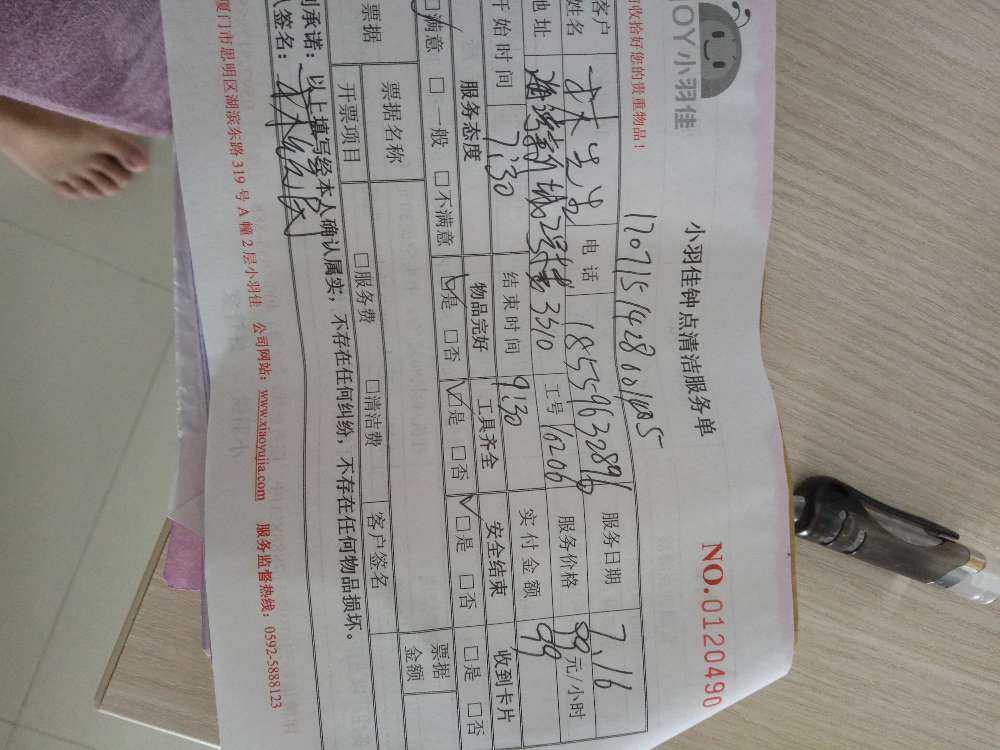 JOY小羽佳
小羽佳钟点清洁服务单
NO.0120490
收拾好您的贵重物品！
1707151428001005
客户姓名 先生 电话 18559632896 服务日期 7.16
地址 海沧新城 3310 工号 10206 服务价格 99元/小时
开始时间 7:30 结束时间 9:30 实付金额 99
服务态度 物品完好 工具齐全 安全结束 收到卡片
☑满意 □一般 □不满意 ☑是 □否 ☑是 □否 ☑是 □否 □是 □否
票据 票据名称 客户签名 票据金额
开票项目 □服务费 □清洁费
承诺：以上填写经本人确认属实，不存在任何纠纷，不存在任何物品损坏。
签名：
厦门市思明区湖滨东路 319 号 A 幢 2 层小羽佳 公司网站：www.xiaoyujia.com 服务监督热线：0592-5888123